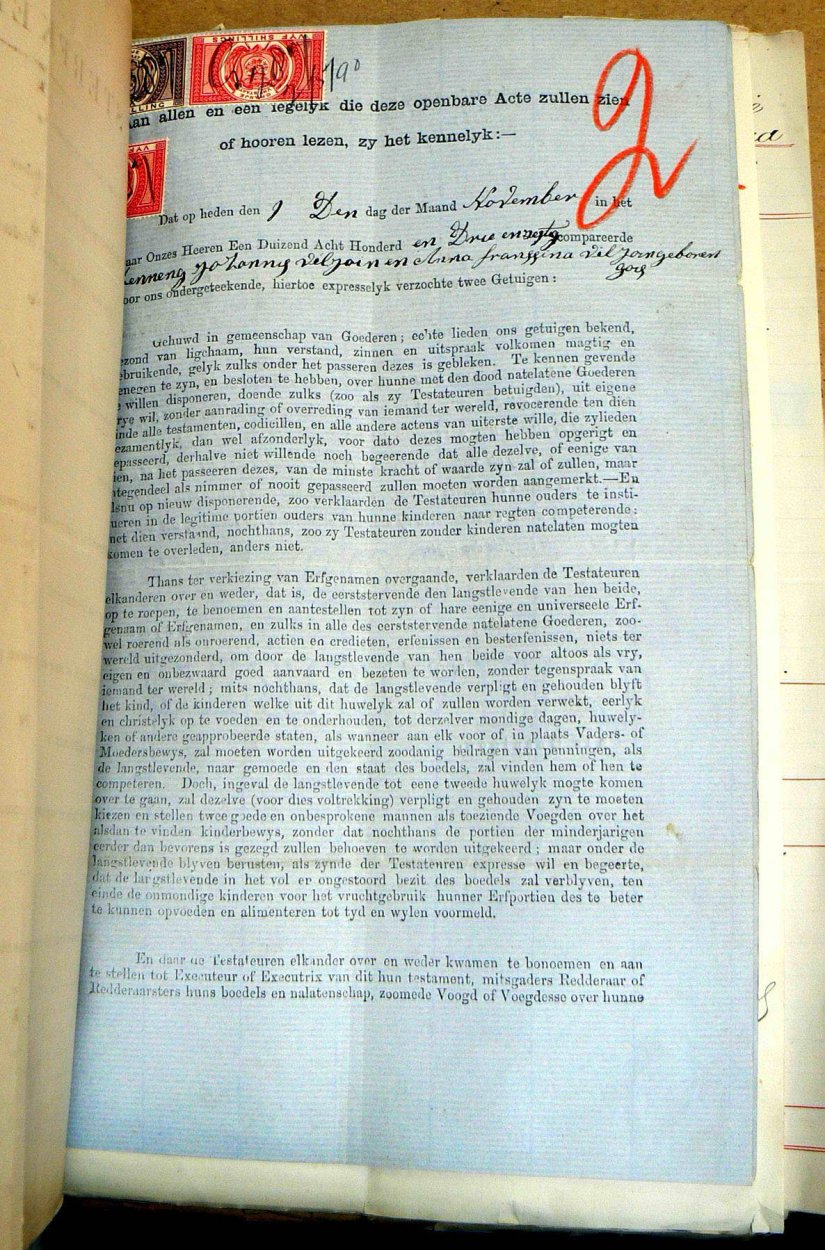 VYF SHILLINGS
LLING
90
2
an allen en een iegelyk die deze openbare Acte zullen zien
of hooren lezen, zy het kennelyk:—
Dat op heden den 9 Den dag der Maand November in het
aar Onzes Heeren Een Duizend Acht Honderd en Drie en compareerde
Johannis Viljoin en Anna franssina Viljoin geboren
oor ons ondergeteekende, hiertoe expresselyk verzochte twee Getuigen:
Gehuwd in gemeenschap van Goederen; echte lieden ons getuigen bekend,
ezond van ligchaam, hun verstand, zinnen en uitspraak volkomen magtig en
ebruikende, gelyk zulks onder het passeren dezes is gebleken. Te kennen gevende
enegen te zyn, en besloten te hebben, over hunne met den dood natelatene Goederen
e willen disponeren, doende zulks (zoo als zy Testateuren betuigden), uit eigene
rye wil, zonder aanrading of overreding van iemand ter wereld, revocerende ten dien
inde alle testamenten, codicillen, en alle andere actens van uiterste wille, die zylieden
ezamentlyk, dan wel afzonderlyk, voor dato dezes mogten hebben opgerigt en
epasseerd, derhalve niet willende noch begeerende dat alle dezelve, of eenige van
ien, na het passeeren dezes, van de minste kracht of waarde zyn zal of zullen, maar
ntegendeel als nimmer of nooit gepasseerd zullen moeten worden aangemerkt.—En
lsnu op nieuw disponerende, zoo verklaarden de Testateuren hunne ouders te insti-
ueren in de legitime portien ouders van hunne kinderen naar regten competerende:
met dien verstaand, nochthans, zoo zy Testateuren zonder kinderen natelaten mogten
komen te overleden, anders niet.
Thans ter verkiezing van Erfgenamen overgaande, verklaarden de Testateuren
elkanderen over en weder, dat is, de eerststervende den langstlevende van hen beide,
op te roepen, te benoemen en aantestellen tot zyn of hare eenige en universeele Erf-
genaam of Erfgenamen, en zulks in alle des eerststervende natelatene Goederen, zoo-
wel roerend als onroerend, actien en credieten, erfenissen en besterfenissen, niets ter
wereld uitgezonderd, om door de langstlevende van hen beide voor altoos als vry,
eigen en onbezwaard goed aanvaard en bezeten te worden, zonder tegenspraak van
iemand ter wereld; mits nochthans, dat de langstlevende verpligt en gehouden blyft
het kind, of de kinderen welke uit dit huwelyk zal of zullen worden verwekt, eerlyk
en christelyk op te voeden en te onderhouden, tot derzelver mondige dagen, huwely-
ken of andere geapprobeerde staten, als wanneer aan elk voor of in plaats Vaders- of
Moedersbewys, zal moeten worden uitgekeerd zoodanig bedragen van penningen, als
de langstlevende, naar gemoede en den staat des boedels, zal vinden hem of hen te
competeren. Doch, ingeval de langstlevende tot eene tweede huwelyk mogte komen
over te gaan, zal dezelve (voor dies voltrekking) verpligt en gehouden zyn te moeten
kiezen en stellen twee goede en onbesprokene mannen als toeziende Voegden over het
alsdan te vinden kinderbewys, zonder dat nochthans de portien der minderjarigen
eerder dan bevorens is gezegd zullen behoeven te worden uitgekeerd; maar onder de
langstlevende blyven berusten, als zynde der Testateuren expresse wil en begeerte,
dat de langstlevende in het vol er ongestoord bezit des boedels zal verblyven, ten
einde de onmondige kinderen voor het vruchtgebruik hunner Erfportien des te beter
te kunnen opvoeden en alimenteren tot tyd en wylen voormeld.
En daar de Testateuren elkander over en weder kwamen te bonoemen en aan
te stellen tot Executeur of Executrix van dit hun testament, mitsgaders Redderaar of
Redderaarsters huns boedels en nalatenschap, zoomede Voogd of Voegdesse over hunne